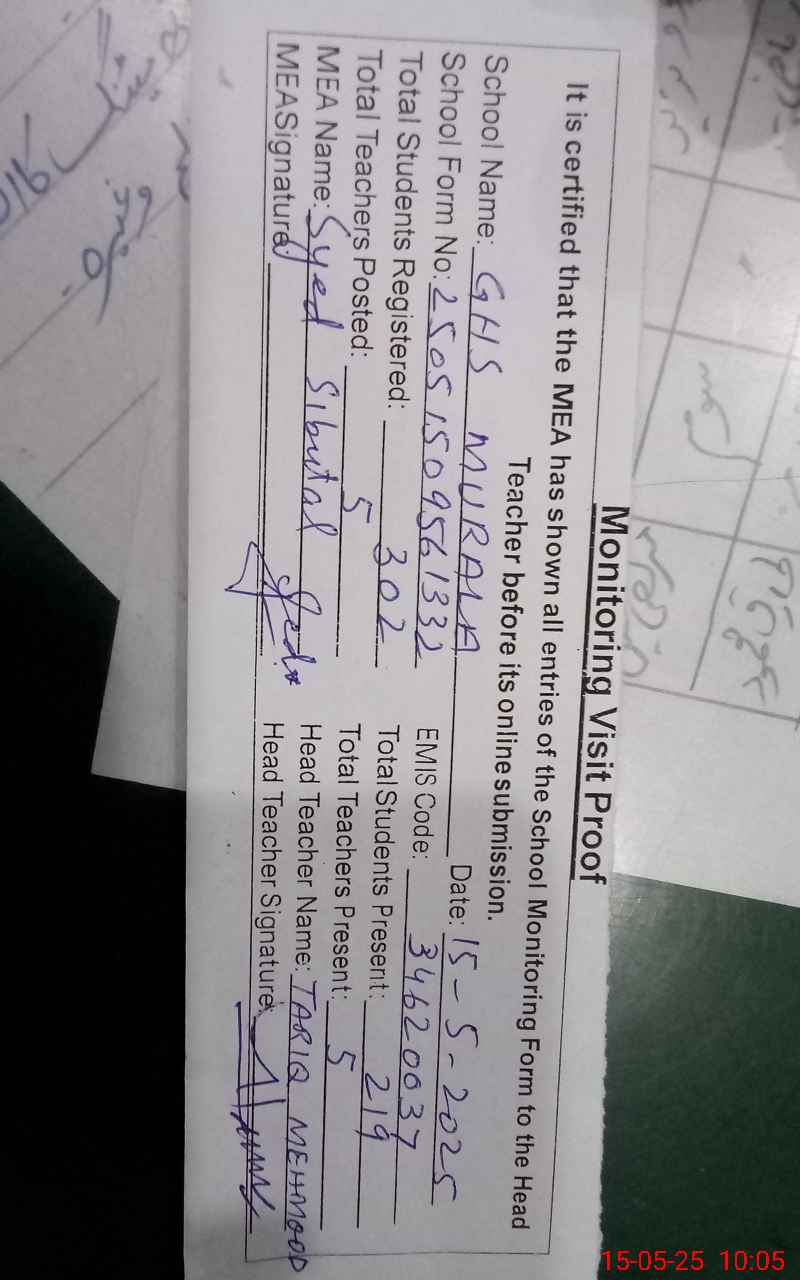 Monitoring Visit Proof
It is certified that the MEA has shown all entries of the School Monitoring Form to the Head
Teacher before its online submission.
School Name: GHS MURALA Date: 15-5-2025
School Form No: 25051509561332 EMIS Code: 34620037
Total Students Registered: 302 Total Students Present: 219
Total Teachers Posted: 5 Total Teachers Present: 5
MEA Name: Syed Sibutal Head Teacher Name: TARIQ MEHMOOD
MEASignature: Head Teacher Signature:
15-05-25 10:05